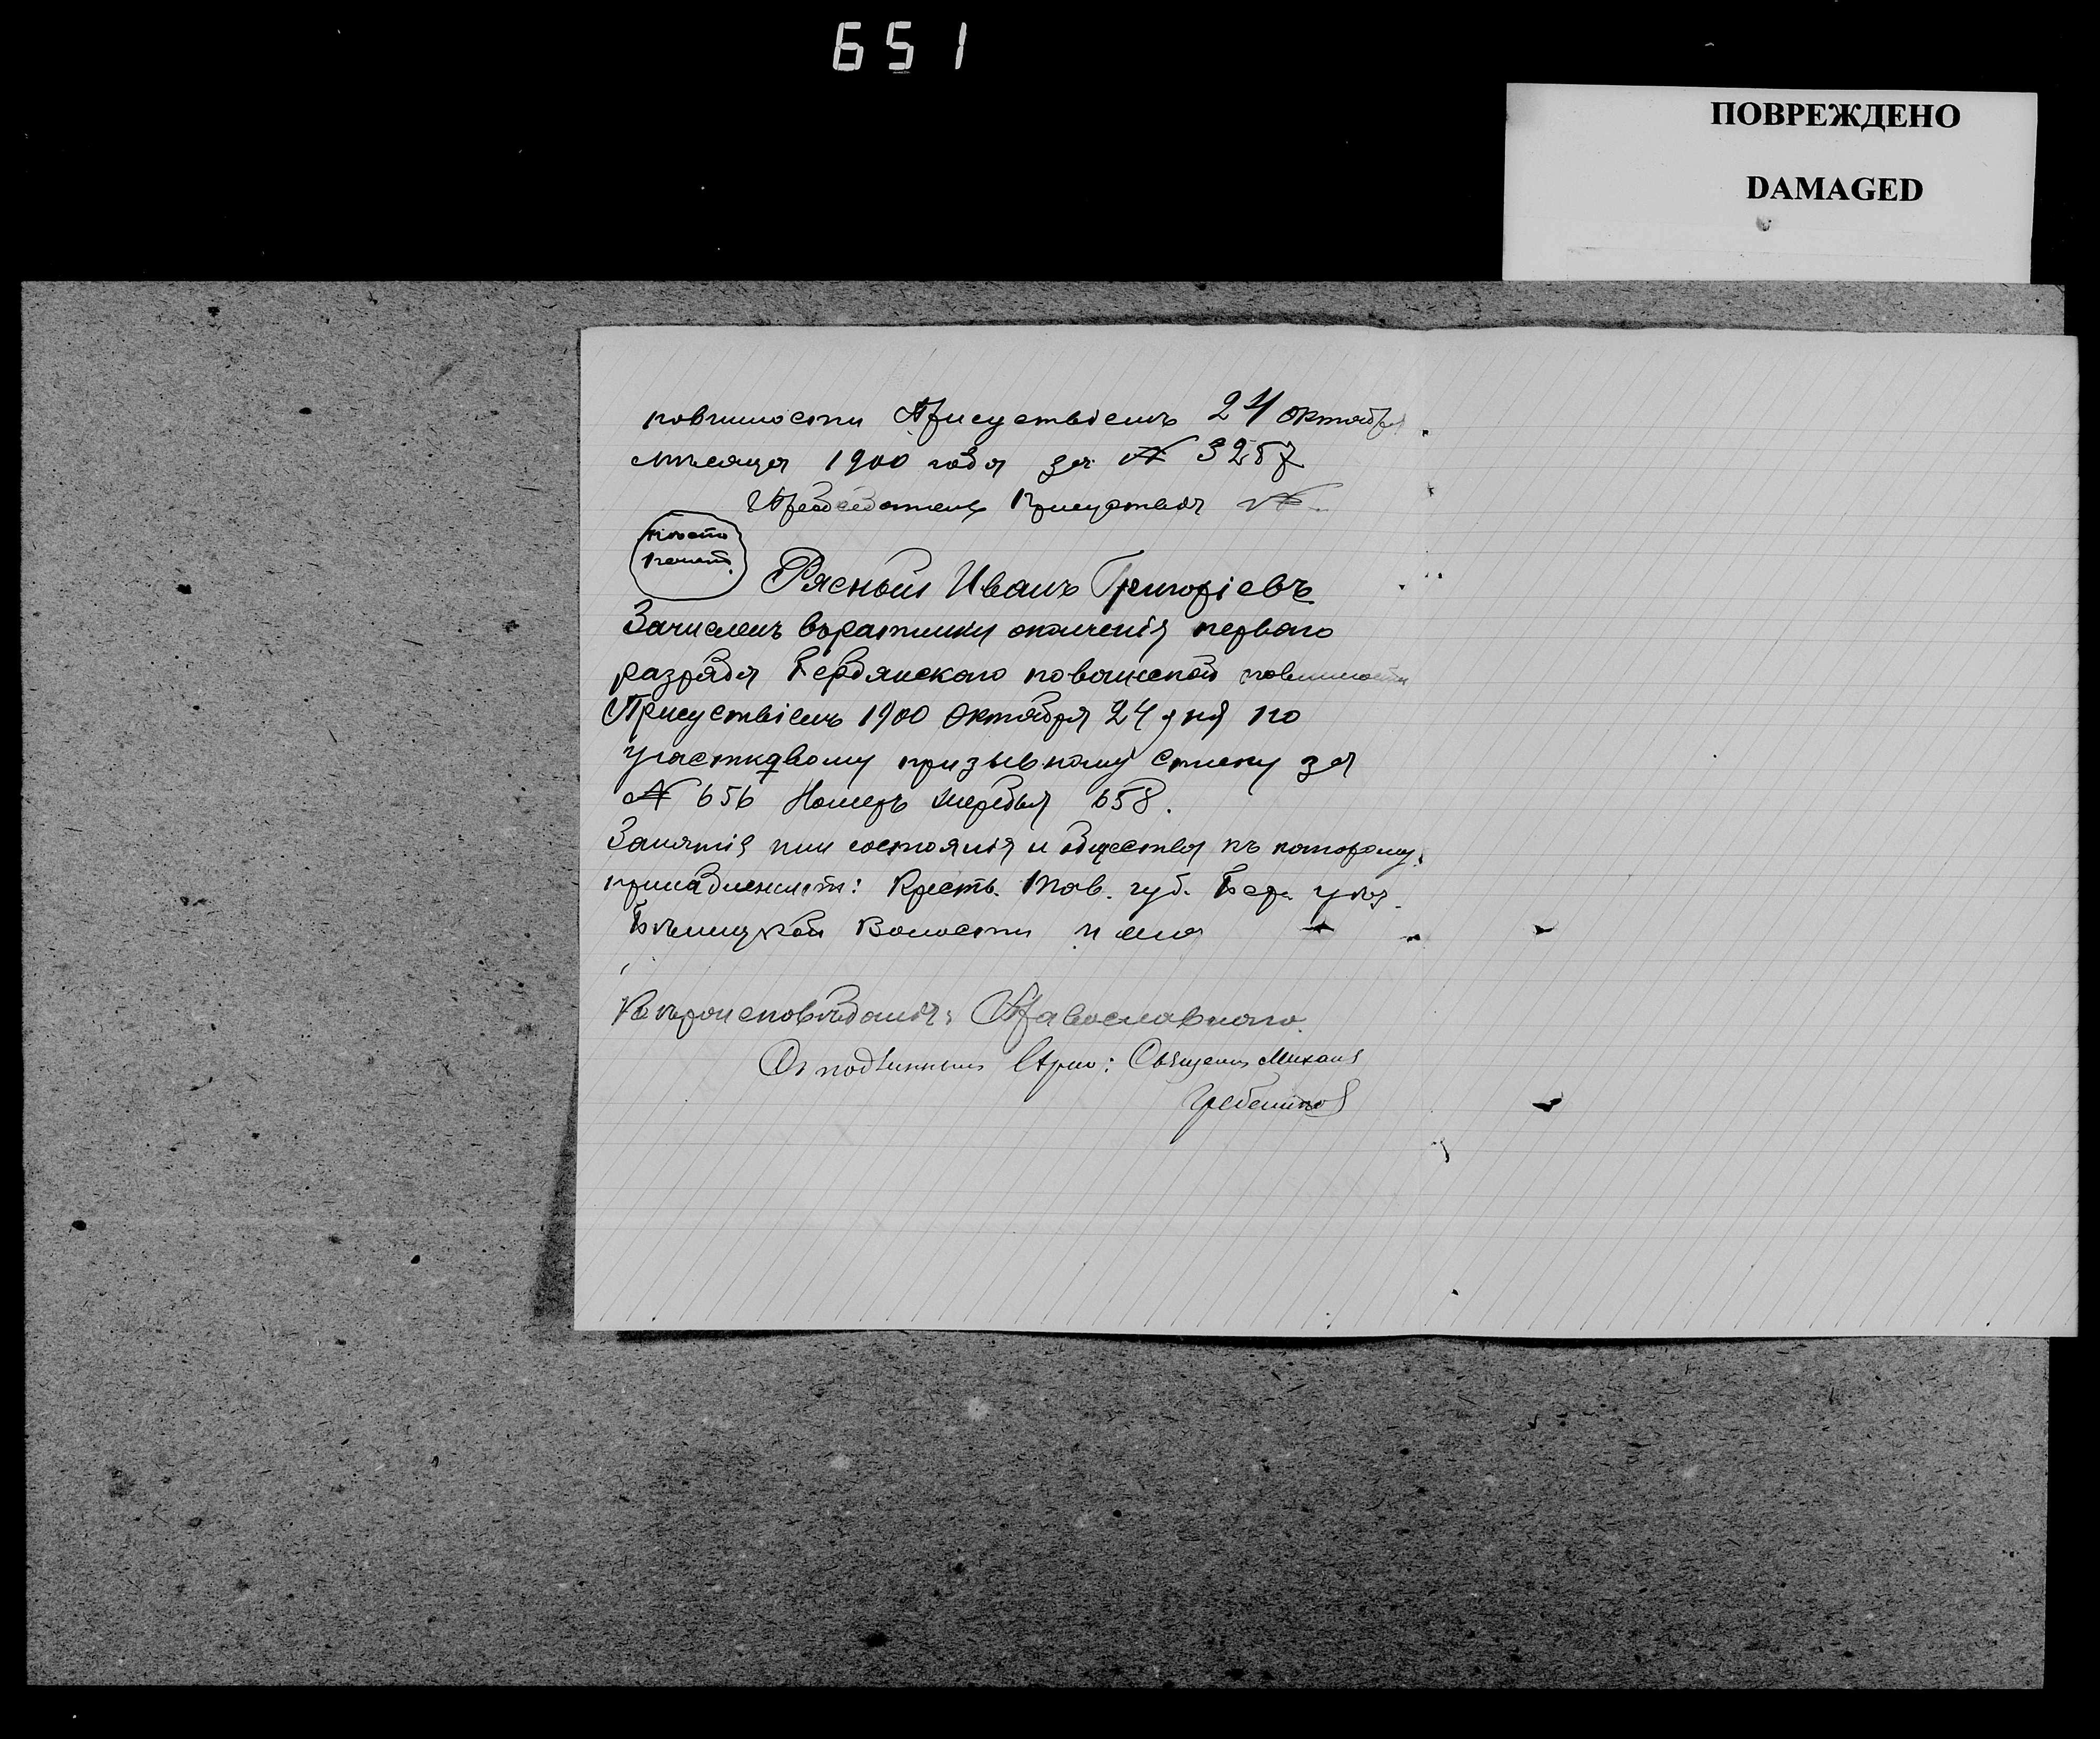 651
ПОВРЕЖДЕНО
DAMAGED
повинности Присуствіемъ 24 октября
мѣсяца 1900 года за № 3287
Председатель Присуствія №
Мѣсто
печати.
Рясный Иванъ Григоріевъ
Зачисленъ въ ратники ополченія перваго
разряда Бердянскаго по воинской повинности
Присуствіемъ 1900 Октября 24 дня по
участковому призывному списку за
№ 656 Номеръ жеребья 658.
Занятія или состоянія и общества къ которому
принадлежитъ: Крестъ. Тав. губ. Бер. уѣз.
волости и села
Вѣроисповѣданія: Православнаго.
Съ подлиннымъ вѣрно: Священ. Михаил
Гребенников